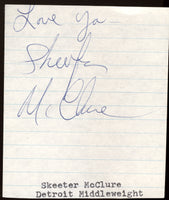 Love ya -
Skeeter
McClure
Skeeter McClure
Detroit Middleweight